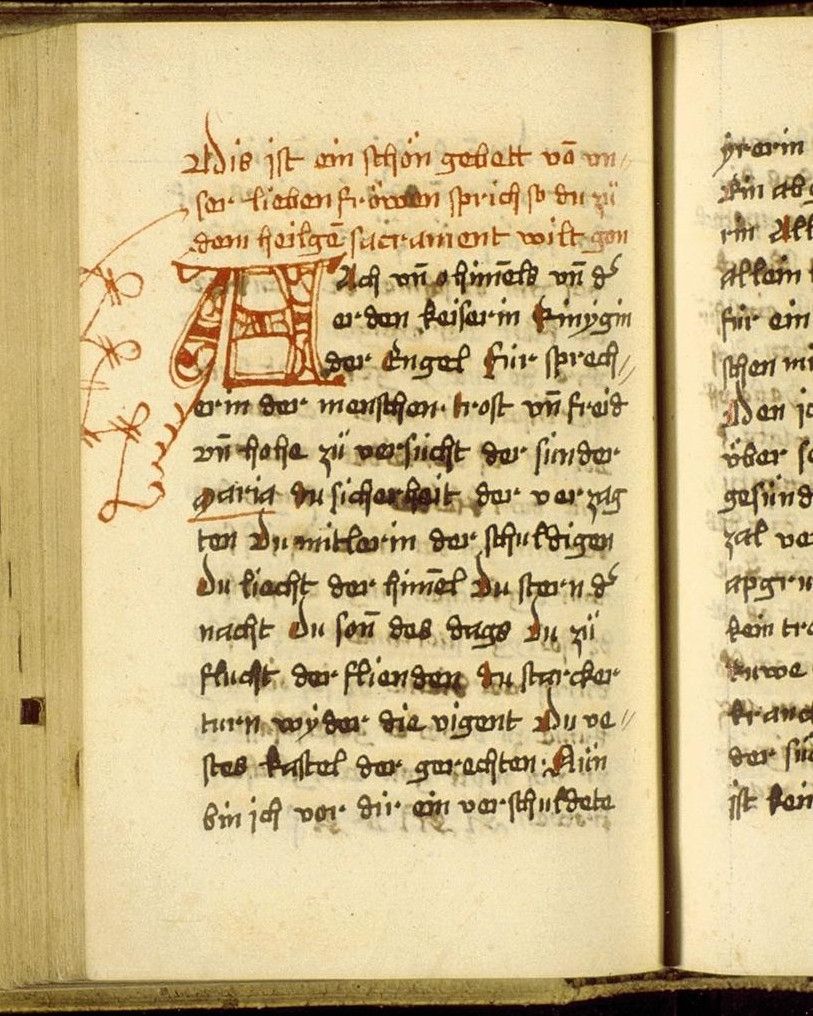 Dis ist ein schön gebett vō vn⸗
ser lieben fröwen sprich so du zů
dem heilgē sacrament wilt gon
Ach vn̄ o him̄els vn̄ dˀ
erden keiserin kinygin
der Engel für sprech⸗
erin der menschen· trost vn̄ freid
vn̄ hohe zů versucht der sünder
maria du sicherheit der verzag
ten Du mitlerin der schuldigen
Du liecht der him̄el Du stern dˀ
nacht Du son̄ des dags Du zů
flucht der flienden du starcker
turn wyder die vigent Du ve⸗
stes kastel der gerechten· Nün
bin ich vor dir ein verschuldete
yrerin
kin ab
rin All
allein
für ein
schen mi
Den ic
über s
gesünd
zal ve
apgru
kein tr
ruwe
kranc
der sü
ist kein